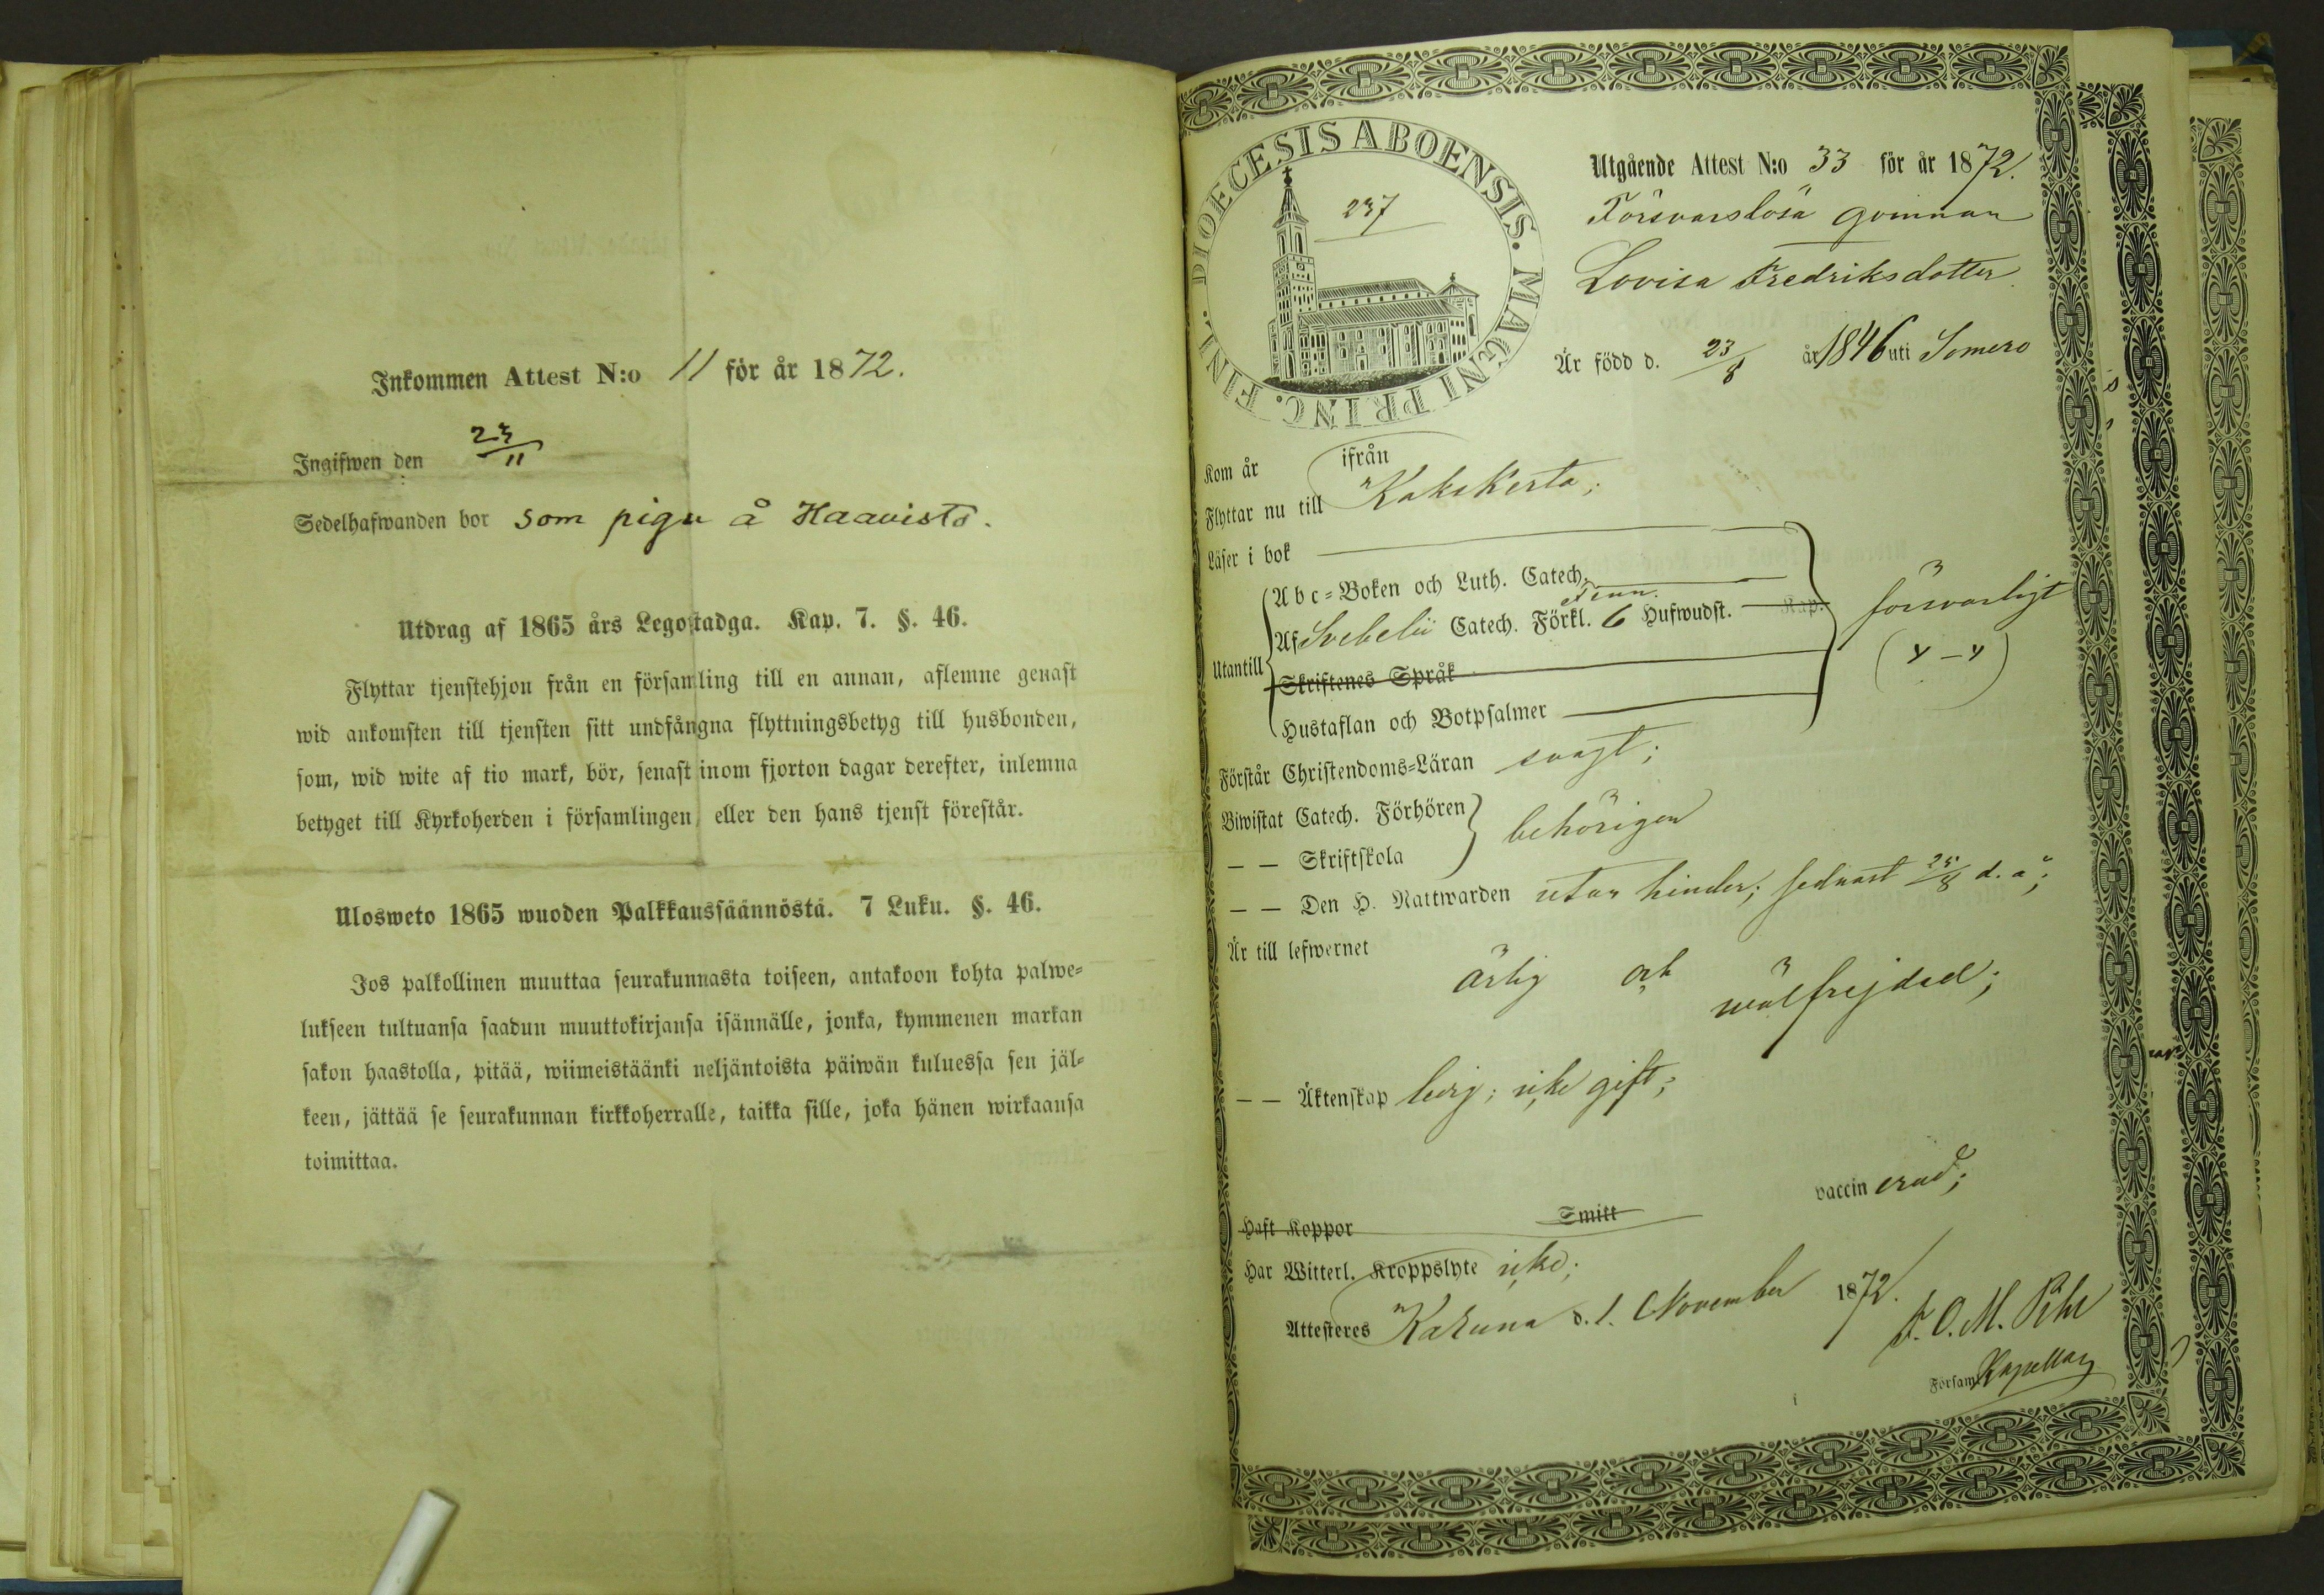 Inkommen Attest N:o 11 för år 1872.
Ingifwen den 23/11
Sedelhafwanden bor som piga å Haavisto.
Utdrag af 1865 års Legostadga. Kap. 7. §. 46.
Flyttar tjenstehjon från en församling till en annan, aflemne genast
wid ankomsten till tjensten sitt undfångna flyttningsbetyg till husbonden,
som, wid wite af tio mark, bör, senast inom fjorton dagar derefter, inlemna
betyget till Kyrkoherden i församlingen eller den hans tjenst förestår.
Ulosweto 1865 wuoden Palkkaussäännöstä. 7 Luku. §. 46.
Jos palkollinen muuttaa seurakunnasta toiseen, antakoon kohta palwe-
lukseen tultuansa saadun muuttokirjansa isännälle, jonka, kymmenen markan
sakon haastolla, pitää, wiimeistäänki neljäntoista päiwän kuluessa sen jäl-
keen, jättää se seurakunnan kirkkoherralle, taikka sille, joka hänen wirkaansa
toimittaa.
DIOECESIS ABOENSIS. MAGNI PRINC. FINL.
237
Utgående Attest N:o 33 för år 1872.
Försvarslösa qvinnan
Lovisa Fredriksdotter
Är född d. 23/8 år 1846 uti Somero
Kom år ifrån
Flyttar nu till Kakskerta;
Läser i bok
Utantill
Abc-Boken och Luth. Catech.
Af Svebelii Catech. Förkl. 6 Hufwudst. Kap.
Finn.
Skriftenes Språk
Hustaflan och Botpsalmer
försvarligt
Förstår Christendoms-Läran svagt;
Biwistat Catech. Förhören
— — Skriftskola
behörigen
— — Den H. Nattwarden utan hinder; sednast 25/8 d. å;
Är till lefwernet
ärlig och wälfrejdad;
— — Äktenskap ledig; icke gift;
Haft Koppor Smitt vaccinerad;
Har Witterl. Kroppslyte icke;
Attesteres Karuna d. 1. November 1872.
Församl. Kapellan